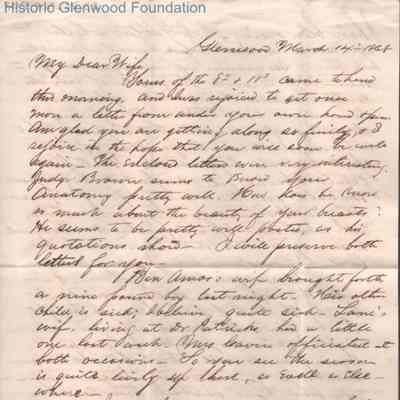 Historic Glenwood Foundation
Glenwood March 14th 1868
My Dear Wife,
Yours of the 8th & 11th came to hand
this morning, and I was rejoiced to get once
more a letter from under your own hand again.
Am glad you are getting along so finely, &
rejoice in the hope that you will soon be well
again – The enclosed letters were very interesting.
Judge Brown seems to know your
Anatomy pretty well. How does he know
so much about the beauty of your breasts?
He seems to be pretty well posted, as his
quotations show – I will preserve both
letters for you –
Ben Amos's wife brought forth
a nine pound boy last night. His other
child is sick, quite sick – 
wife, living at Dr Patricks had a little
one last week. Mrs officiated at
both occasions – So you see the season
is quite lively up here, as well as else-
where –